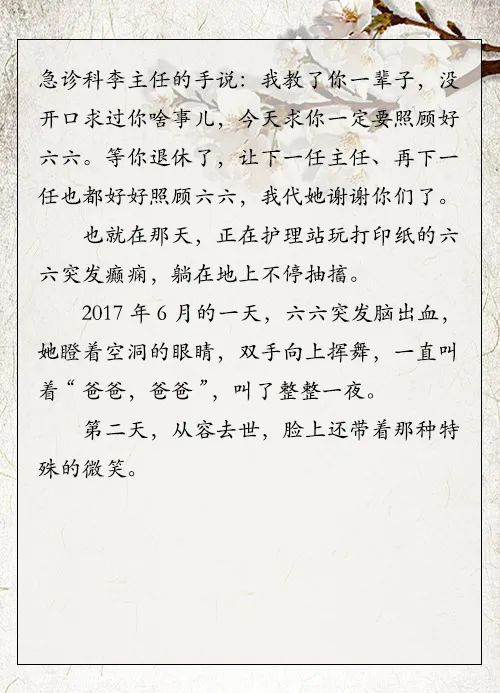 急诊科李主任的手说：我教了你一辈子，没
开口求过你啥事儿，今天求你一定要照顾好
六六。等你退休了，让下一任主任、再下一
任也都好好照顾六六，我代她谢谢你们了。
也就在那天，正在护理站玩打印纸的六
六突发癫痫，躺在地上不停抽搐。
2017 年 6 月的一天，六六突发脑出血，
她瞪着空洞的眼睛，双手向上挥舞，一直叫
着“爸爸，爸爸”，叫了整整一夜。
第二天，从容去世，脸上还带着那种特
殊的微笑。